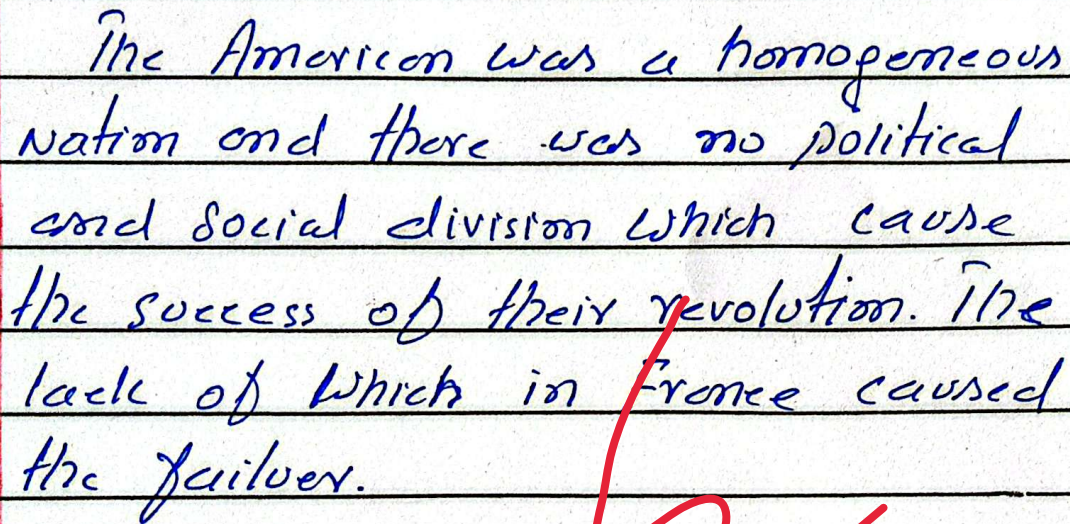 The American was a homogeneous
Nation and there was no political
and social division which cause
the success of their revolution. The
lack of which in France caused
the failuer.